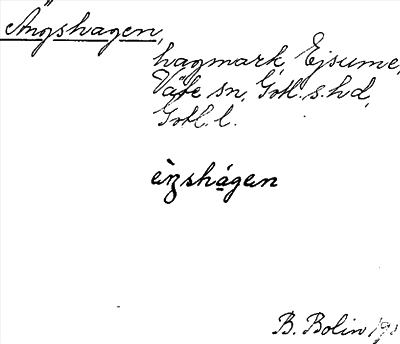 Ängshagen,
hagmark, Ejsume,
Väte sn, Gotl. s. hd,
Gotl. l.
èŋshágen
B. Bolin